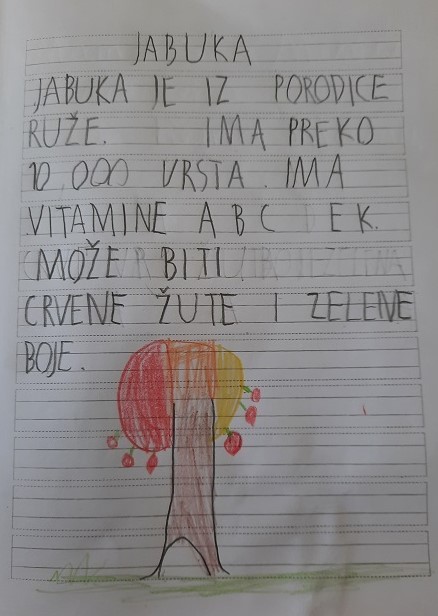 JABUKA
JABUKA JE IZ PORODICE
RUŽE. IMA PREKO
10 000 VRSTA. IMA
VITAMINE A B C E K.
MOŽE BITI
CRVENE ŽUTE I ZELENE
BOJE.